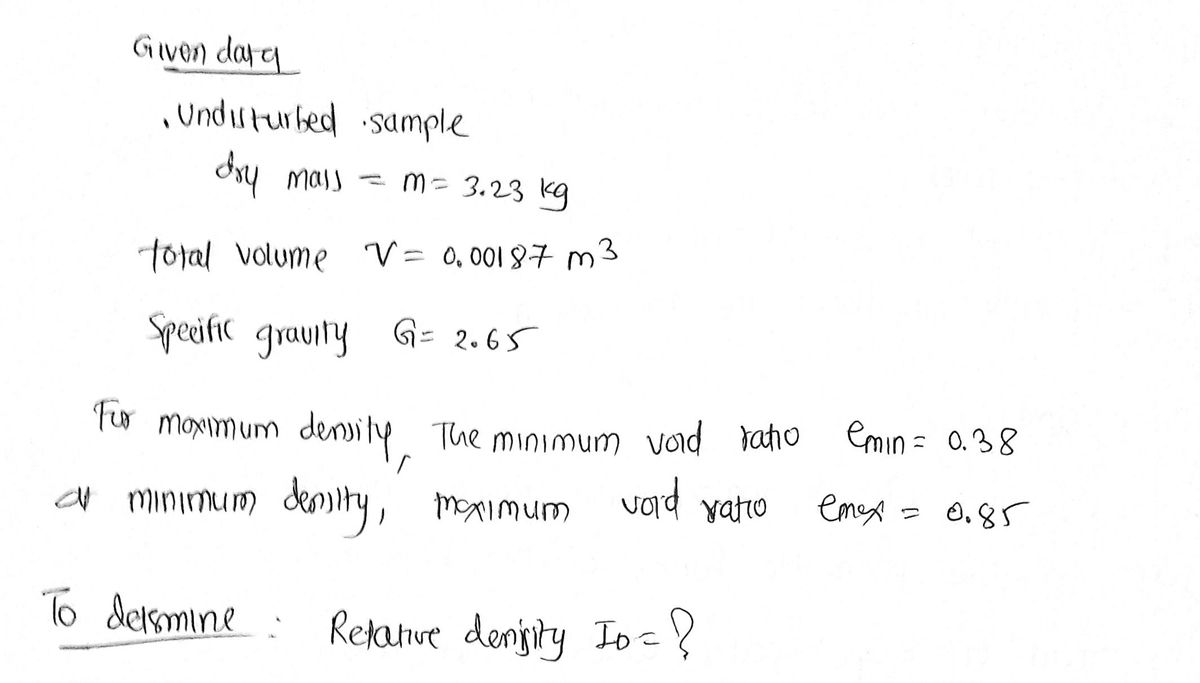 Given data
. Undisturbed . sample
dry mass = m = 3.23 kg
total volume V = 0.00187 m3
Specific gravity G = 2.65
For maximum density, The minimum void ratio emin = 0.38
minimum density, maximum void ratio emax = 0.85
To determine : Relative density ID = ?